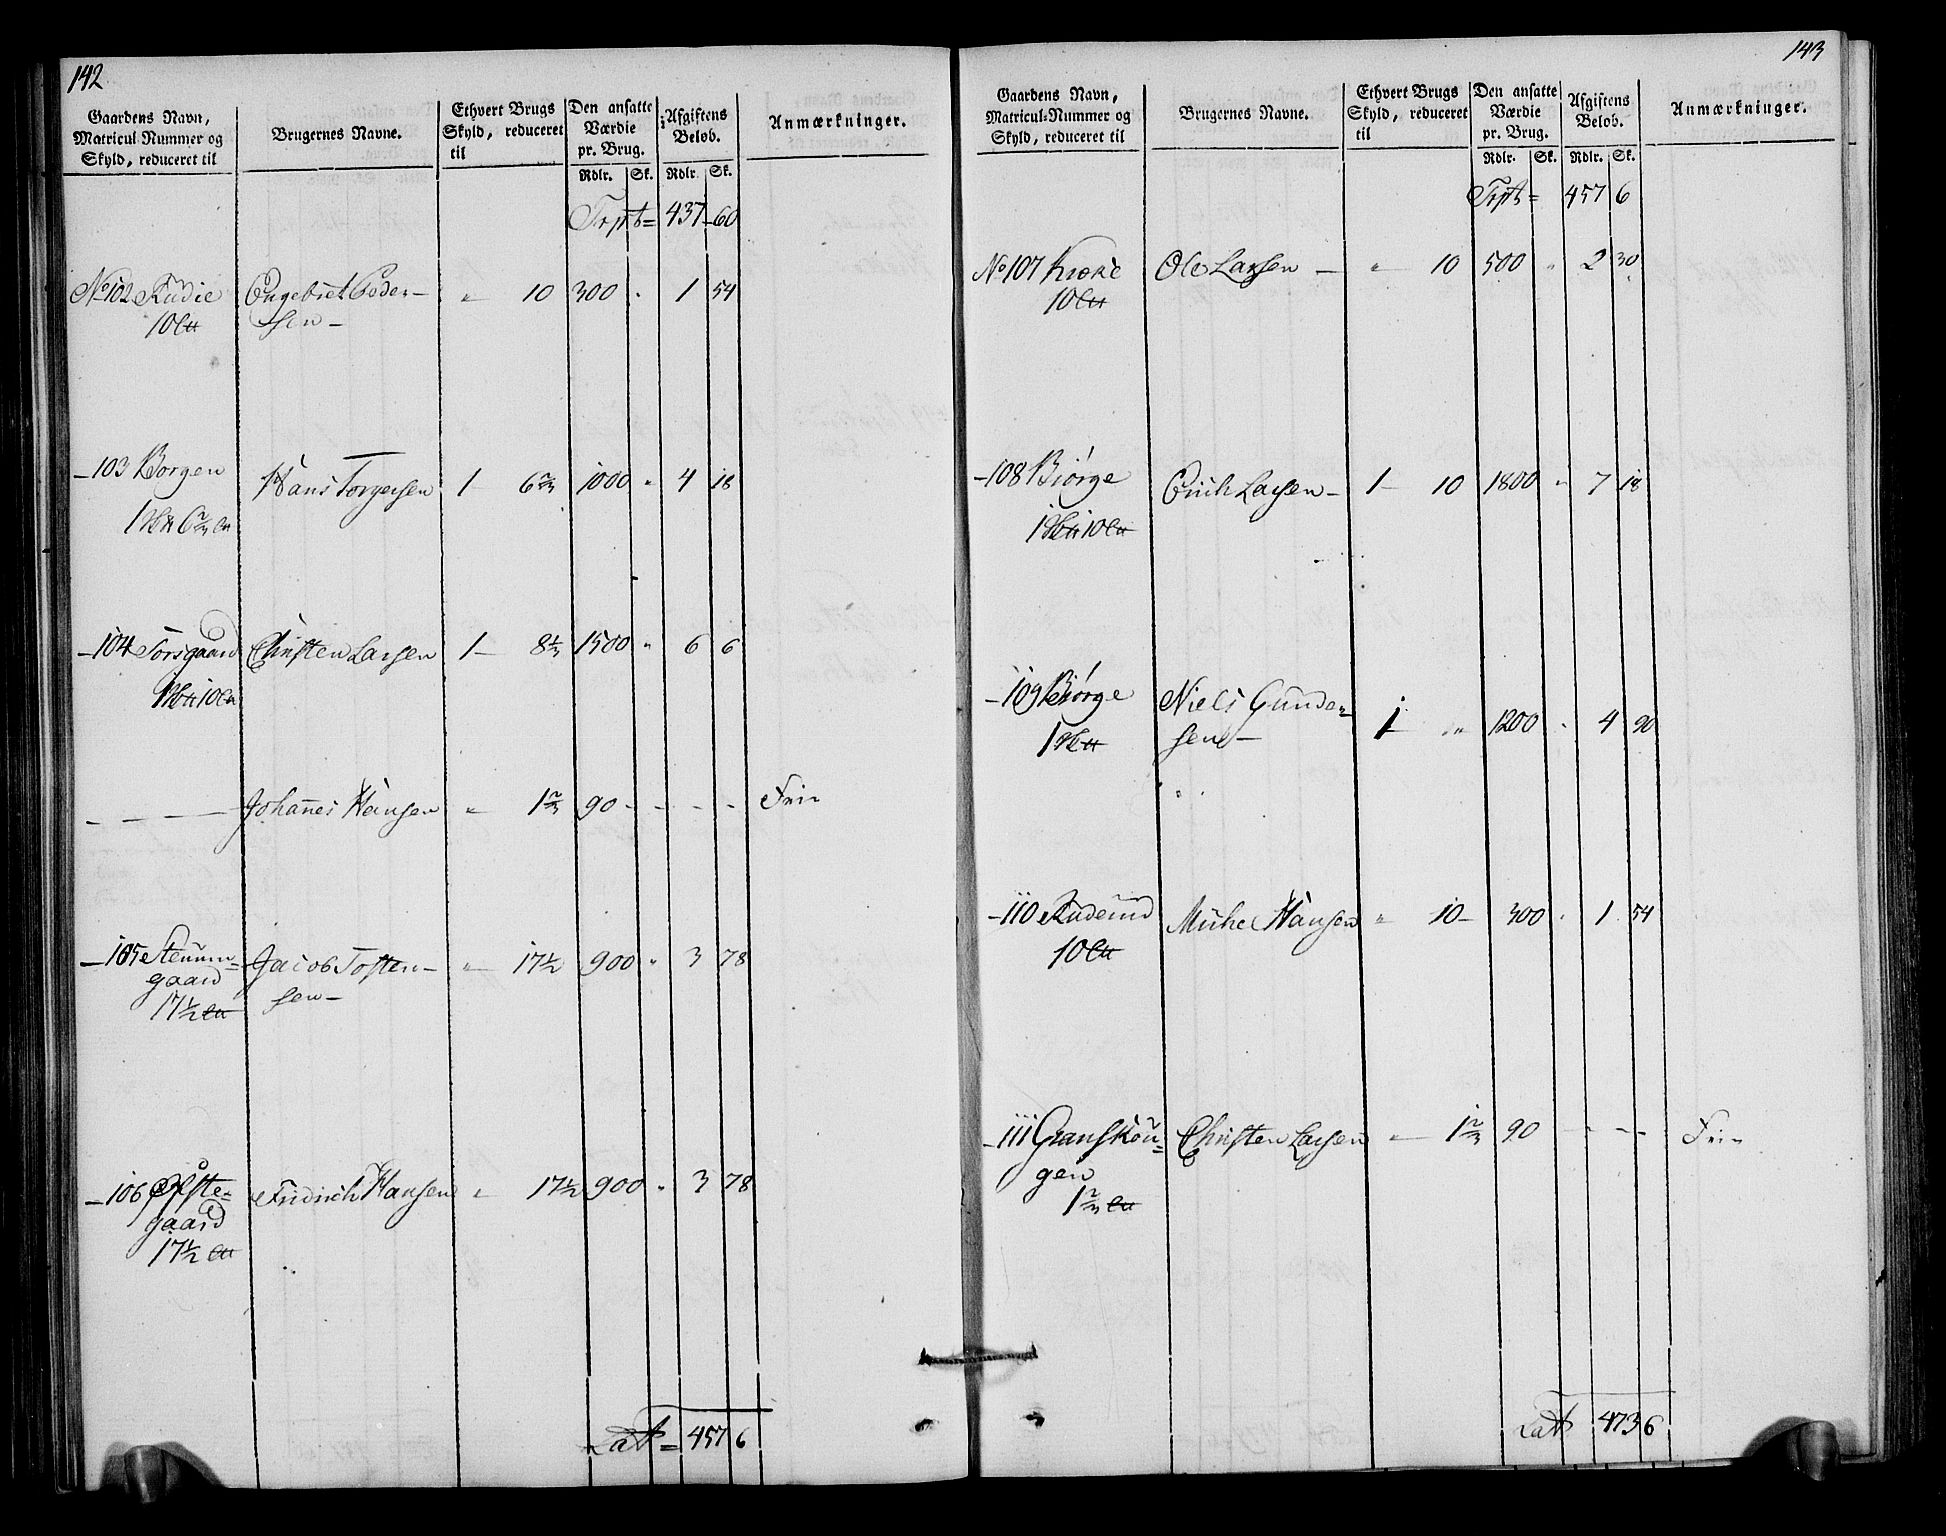 142
Gaardens Navn, Matricul-Nummer og Skyld, reduceret til | Brugernes Navne. | Ethvert Brugs Skyld, reduceret til | Den ansatte Værdie pr. Brug. Rdlr. Sk. | Afgiftens Beløb. Rdlr. Sk. | Anmærkninger.
Trpt = 437 - 60
No 102 Rudie Engebret Peder- " 10 300 " 1 54
10 sen -
- 103 Borgen Hans Torgersen 1 - 6⅔ 1000 " 4 18
1 6⅔
- 104 Torsgaard Christen Larsen 1 - 8⅓ 1500 " 6 6
1 10
- - - Johannes Hansen " 1⅔ 90 - - - - Fri -
- 105 Steuum= Jacob Tosten- " 17½ 900 " 3 78
gaard sen -
17½
- 106 Øfste- Fridrich Hansen " 17½ 900 " 3 78
gaard
17½
Lat = 457 6
143
Gaardens Navn, Matricul-Nummer og Skyld, reduceret til | Brugernes Navne. | Ethvert Brugs Skyld, reduceret til | Den ansatte Værdie pr. Brug. Rdlr. Sk. | Afgiftens Beløb. Rdlr. Sk. | Anmærkninger.
Trpt = 457 6
No 107 Kroke Ole Larsen - " 10 500 " 2 30
10
- 108 Biørge Erich Larsen - 1 - 10 1800 " 7 18
1 10
- 109 Biørge Niels Gunder= 1 " 1200 " 4 90
1 sen -
- 110 Rudeiud Michel Hansen " 10 - 300 " 1 54
10
- 111 Granskou= Christen Larsen " 1⅔ 90 - - - Fri -
gen
1⅔
Lat 473 6